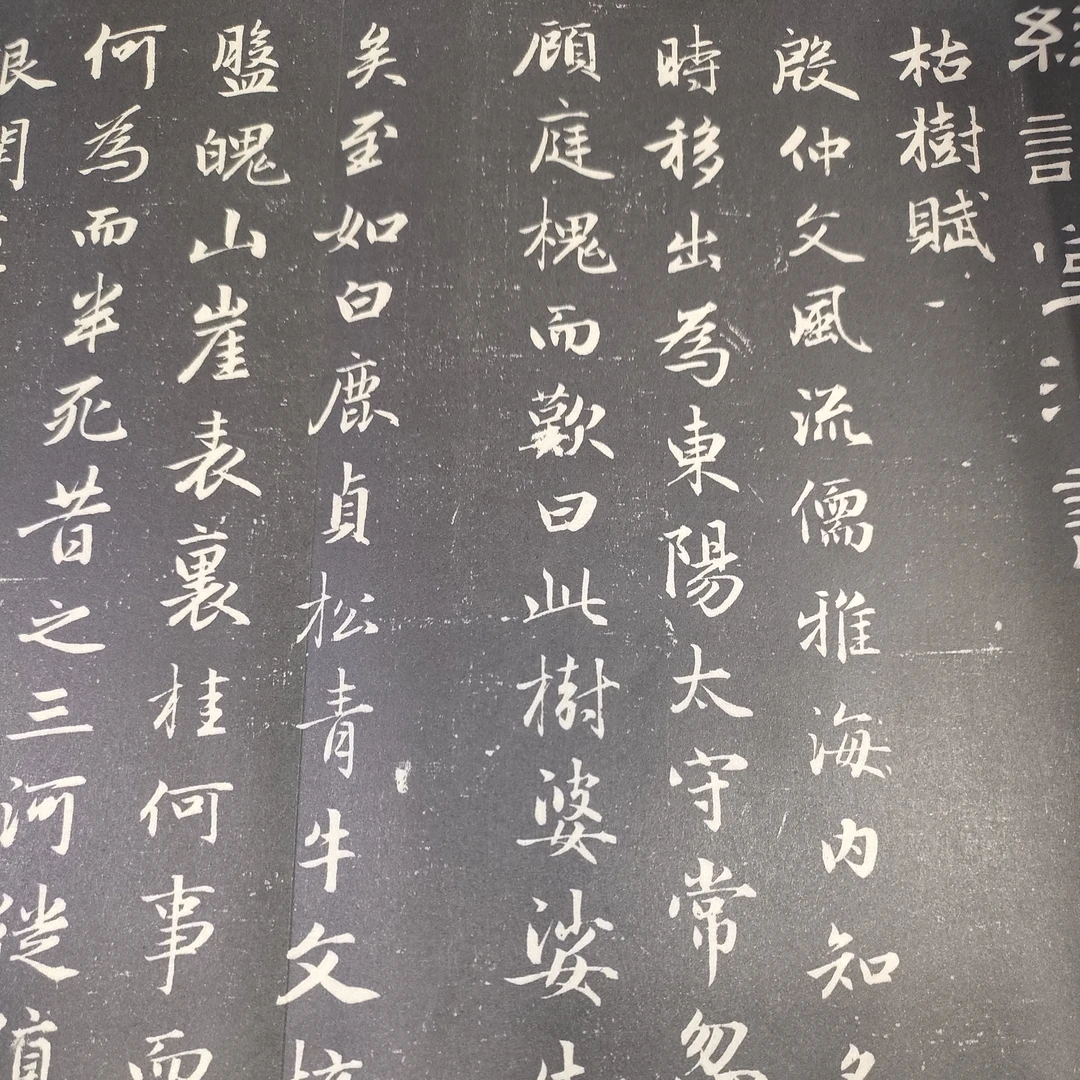 枯樹賦
殷仲文風流儒雅海内知名
時移出為東陽太守常忽
顧庭槐而歎曰此樹婆娑生
矣至如白鹿貞松青牛文梓
盤魄山崖表裏桂何事而
何為而半死昔之三河徙